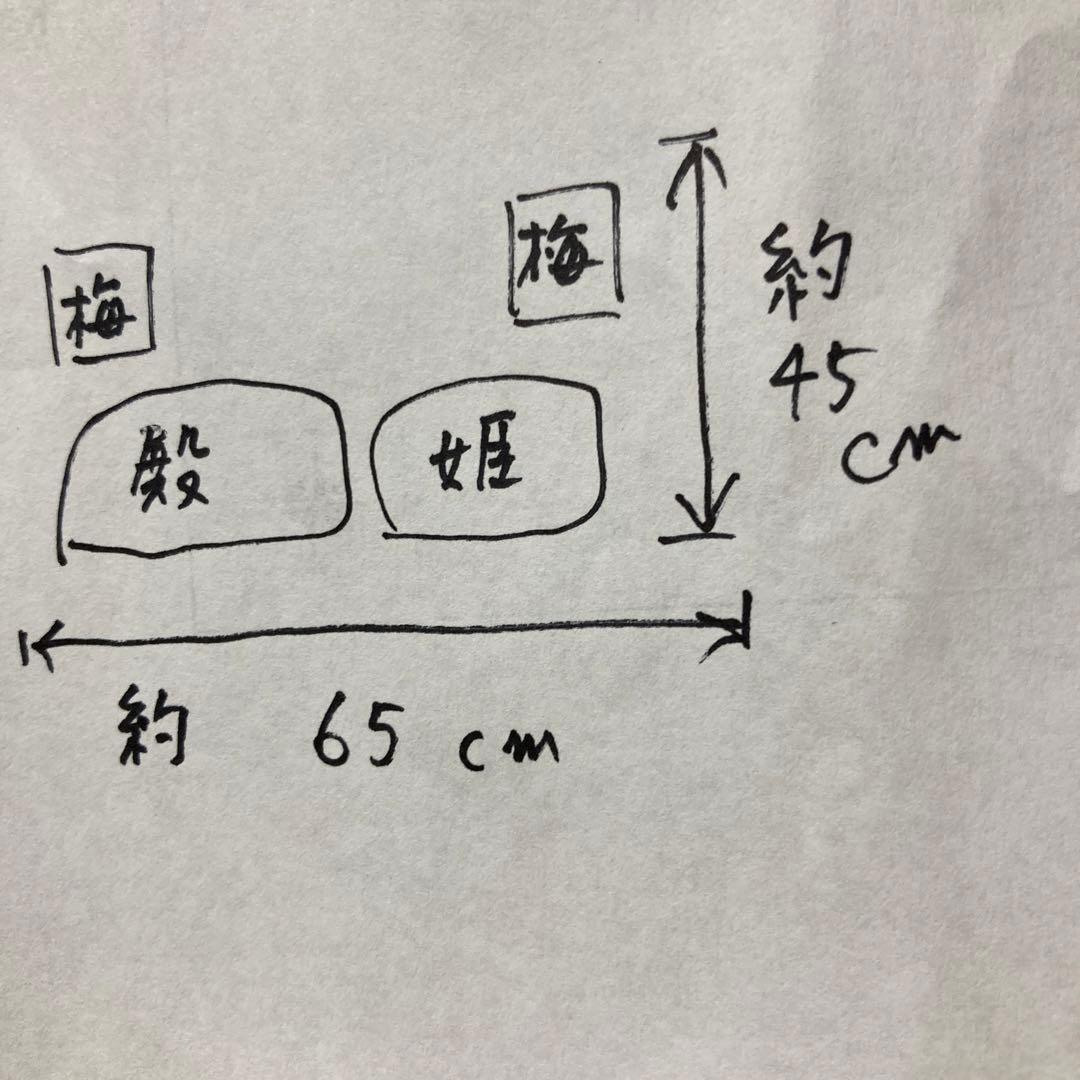 梅
梅
殿
姫
約
45
cm
約 65 cm